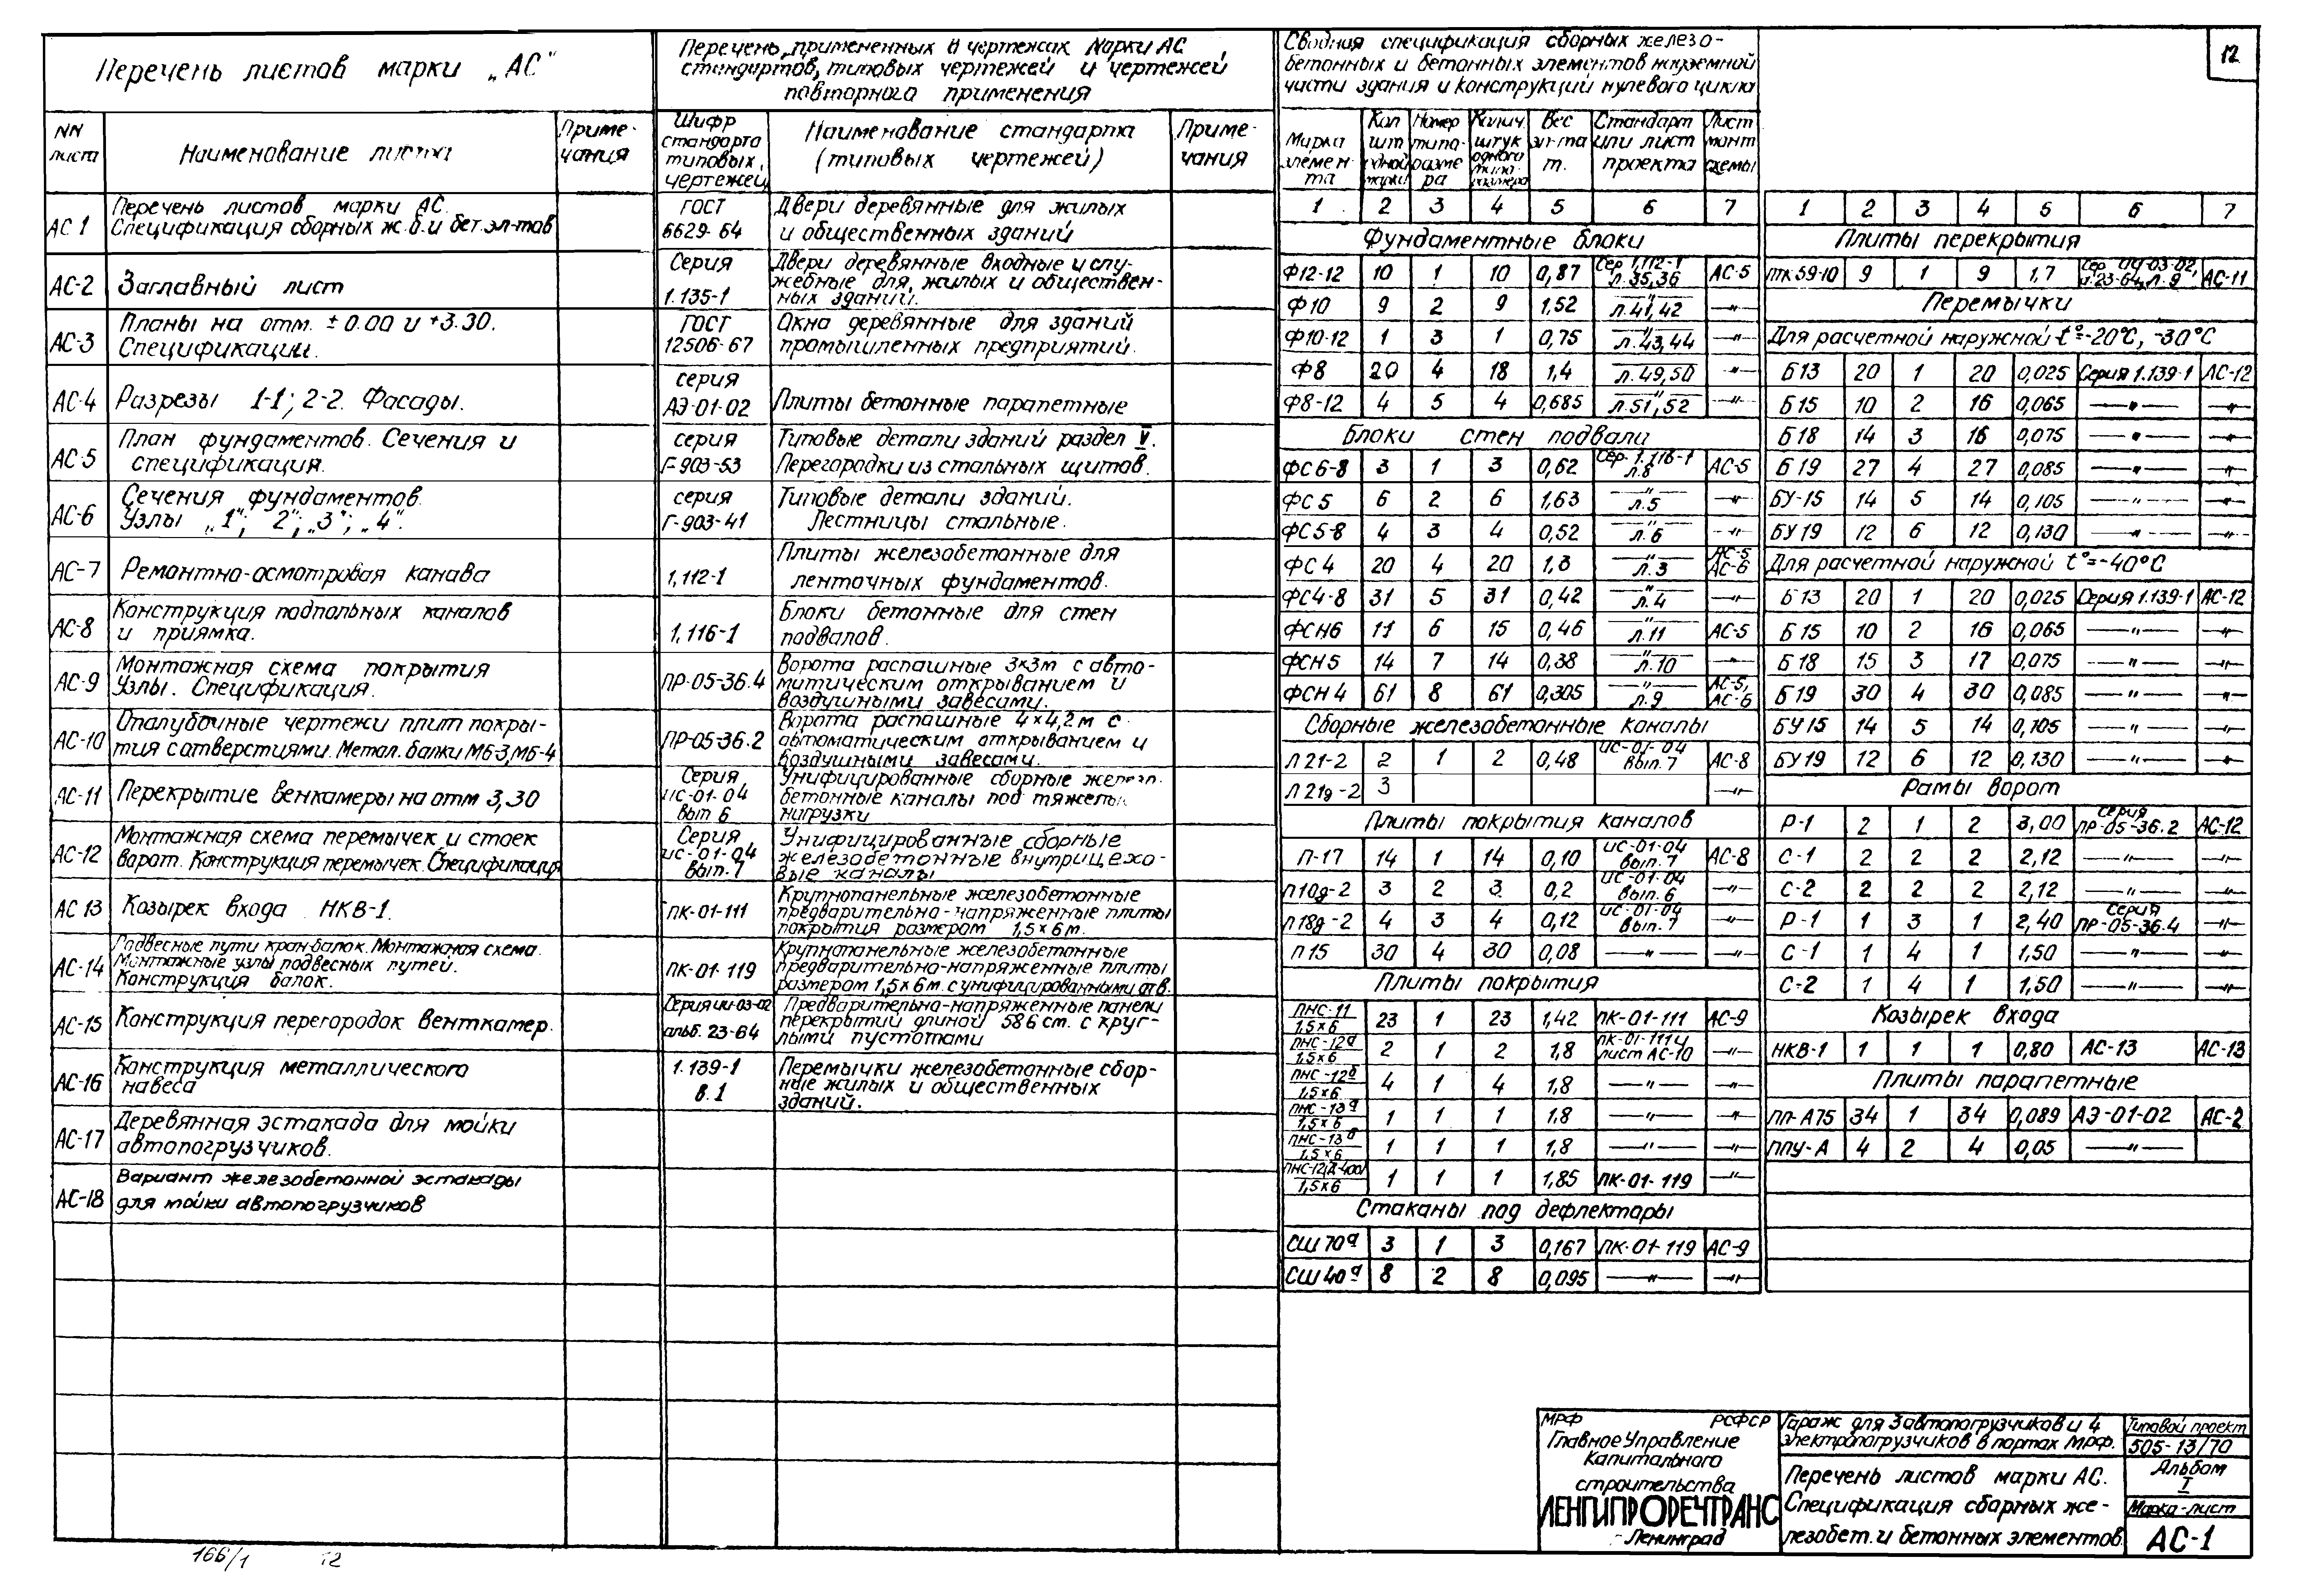 Перечень листов марки „АС"
NN листа | Наименование листа | Приме-чания
АС 1 | Перечень листов марки АС.
Спецификация сборных ж.б. и бет. эл-тов
АС-2 | Заглавный лист
АС-3 | Планы на отм. ±0.00 и +3.30.
Спецификации.
АС-4 | Разрезы 1-1; 2-2. Фасады.
АС-5 | План фундаментов. Сечения и
спецификация.
АС-6 | Сечения фундаментов.
Узлы „1"; 2"; „3"; „4".
АС-7 | Ремонтно-осмотровая канава
АС-8 | Конструкция подпольных каналов
и приямка.
АС-9 | Монтажная схема покрытия
Узлы. Спецификация.
АС-10 | Опалубочные чертежи плит покры-
тия с отверстиями. Метал. балки МБ-3, МБ-4
АС-11 | Перекрытие венкамеры на отм 3,30
АС-12 | Монтажная схема перемычек и стоек
ворот. Конструкция перемычек. Спецификация
АС 13 | Козырек входа НКВ-1.
АС-14 | Подвесные пути кран-балок. Монтажная схема.
Монтажные узлы подвесных путей.
Конструкция балок.
АС-15 | Конструкция перегородок венткамер.
АС-16 | Конструкция металлического
навеса
АС-17 | Деревянная эстакада для мойки
автопогрузчиков.
АС-18 | Вариант железобетонной эстакады
для мойки автопогрузчиков
Перечень примененных в чертежах марки АС
стандартов, типовых чертежей и чертежей
повторного применения
Шифр стандарта типовых чертежей | Наименование стандарта (типовых чертежей) | Приме-чания
ГОСТ 6629-64 | Двери деревянные для жилых
и общественных зданий
Серия 1.135-1 | Двери деревянные входные и слу-
жебные для жилых и обществен-
ных зданий.
ГОСТ 12506-67 | Окна деревянные для зданий
промышленных предприятий.
серия АЭ-01-02 | Плиты бетонные парапетные
серия Г-903-53 | Типовые детали зданий раздел V.
Перегородки из стальных щитов.
серия Г-903-41 | Типовые детали зданий.
Лестницы стальные.
1.112-1 | Плиты железобетонные для
ленточных фундаментов.
1.116-1 | Блоки бетонные для стен
подвалов.
ПР-05-36.4 | Ворота распашные 3×3м с авто-
матическим открыванием и
воздушными завесами.
ПР-05-36.2 | Ворота распашные 4×4,2м с
автоматическим открыванием и
воздушными завесами.
Серия ИС-01-04 вып 6 | Унифицированные сборные железо-
бетонные каналы под тяжелые
нагрузки
Серия ИС-01-04 вып.7 | Унифицированные сборные
железобетонные внутрицехо-
вые каналы
ПК-01-111 | Крупнопанельные железобетонные
предварительно-напряженные плиты
покрытия размером 1,5×6м.
ПК-01-119 | Крупнопанельные железобетонные
предварительно-напряженные плиты
размером 1,5×6м. с унифицированными отв.
Серия ИИ-03-02 альб. 23-64 | Предварительно-напряженные панели
перекрытий длиной 586 см. с круг-
лыми пустотами
1.139-1 в.1 | Перемычки железобетонные сбор-
ные жилых и общественных
зданий.
Сводная спецификация сборных железо-
бетонных и бетонных элементов надземной
части здания и конструкций нулевого цикла
Марка элемен-та | Кол шт одной марки | Номер типо-разме ра | Колич. штук одного типо-размера | Вес эл-та т. | Стандарт или лист проекта | Лист монт схемы
1 | 2 | 3 | 4 | 5 | 6 | 7
Фундаментные блоки
Ф12-12 | 10 | 1 | 10 | 0,87 | Сер 1.112-1 л.35,36 | АС-5
Ф10 | 9 | 2 | 9 | 1,52 | —"— л.41,42 | —"—
Ф10-12 | 1 | 3 | 1 | 0,75 | —"— л.43,44 | —"—
Ф8 | 20 | 4 | 18 | 1,4 | л.49,50 | —"—
Ф8-12 | 4 | 5 | 4 | 0,685 | —"— л.51,52 | —"—
Блоки стен подвала
ФС6-8 | 3 | 1 | 3 | 0,62 | Сер. 1.116-1 л.8 | АС-5
ФС5 | 6 | 2 | 6 | 1,63 | —"— л.5 | —"—
ФС5-8 | 4 | 3 | 4 | 0,52 | —"— л.6 | —"—
ФС4 | 20 | 4 | 20 | 1,3 | —"— л.3 | АС-5 АС-6
ФС4-8 | 31 | 5 | 31 | 0,42 | —"— л.4 | —"—
ФСН6 | 11 | 6 | 15 | 0,46 | —"— л.11 | АС-5
ФСН5 | 14 | 7 | 14 | 0,38 | —"— л.10 | —"—
ФСН4 | 61 | 8 | 61 | 0,305 | —"— л.9 | АС-5, АС-6
Сборные железобетонные каналы
Л21-2 | 2 | 1 | 2 | 0,48 | ИС-01-04 вып.7 | АС-8
Л21д-2 | 3 | | | | | —"—
Плиты покрытия каналов
П-17 | 14 | 1 | 14 | 0,10 | ИС-01-04 вып.7 | АС-8
П10д-2 | 3 | 2 | 3 | 0,2 | ИС-01-04 вып.6 | —"—
П18д-2 | 4 | 3 | 4 | 0,12 | ИС-01-04 вып.7 | —"—
П15 | 30 | 4 | 30 | 0,08 | —"— | —"—
Плиты покрытия
ПНС-11 1,5×6 | 23 | 1 | 23 | 1,42 | ПК-01-111 | АС-9
ПНС-12а 1,5×6 | 2 | 1 | 2 | 1,8 | ПК-01-111 и лист АС-10 | —"—
ПНС-12б 1,5×6 | 4 | 1 | 4 | 1,8 | —"— | —"—
ПНС-13а 1,5×6 | 1 | 1 | 1 | 1,8 | —"— | —"—
ПНС-13б 1,5×6 | 1 | 1 | 1 | 1,8 | —"— | —"—
1,5×6 | 1 | 1 | 1 | 1,85 | ПК-01-119 | —"—
Стаканы под дефлекторы
СШ70а | 3 | 1 | 3 | 0,167 | ПК-01-119 | АС-9
СШ40а | 8 | 2 | 8 | 0,095 | —"— | —"—
12
1 | 2 | 3 | 4 | 5 | 6 | 7
Плиты перекрытия
ПТК59-10 | 9 | 1 | 9 | 1,7 | Сер. ИИ-03-02, а.23-64, л.9 | АС-11
Перемычки
Для расчетной наружной t°=-20°С, -30°С
Б13 | 20 | 1 | 20 | 0,025 | Серия 1.139-1 | АС-12
Б15 | 10 | 2 | 16 | 0,065 | —"— | —"—
Б18 | 14 | 3 | 16 | 0,075 | —"— | —"—
Б19 | 27 | 4 | 27 | 0,085 | —"— | —"—
БУ-15 | 14 | 5 | 14 | 0,105 | —"— | —"—
БУ19 | 12 | 6 | 12 | 0,130 | —"— | —"—
Для расчетной наружной t°=-40°С
Б13 | 20 | 1 | 20 | 0,025 | Серия 1.139-1 | АС-12
Б15 | 10 | 2 | 16 | 0,065 | —"— | —"—
Б18 | 15 | 3 | 17 | 0,075 | —"— | —"—
Б19 | 30 | 4 | 30 | 0,085 | —"— | —"—
БУ15 | 14 | 5 | 14 | 0,105 | —"— | —"—
БУ19 | 12 | 6 | 12 | 0,130 | —"— | —"—
Рамы ворот
Р-1 | 2 | 1 | 2 | 3,00 | Серия ПР-05-36.2 | АС-12
С-1 | 2 | 2 | 2 | 2,12 | —"— | —"—
С-2 | 2 | 2 | 2 | 2,12 | —"— | —"—
Р-1 | 1 | 3 | 1 | 2,40 | Серия ПР-05-36.4 | —"—
С-1 | 1 | 4 | 1 | 1,50 | —"— | —"—
С-2 | 1 | 4 | 1 | 1,50 | —"— | —"—
Козырек входа
НКВ-1 | 1 | 1 | 1 | 0,80 | АС-13 | АС-13
Плиты парапетные
ПП-А75 | 34 | 1 | 34 | 0,089 | АЭ-01-02 | АС-2
ППУ-А | 4 | 2 | 4 | 0,05 | —"—
МРФ РСФСР
Главное Управление
Капитального
строительства
ЛЕНГИПРОРЕЧТРАНС
г. Ленинград
Гараж для 3 автопогрузчиков и 4
электропогрузчиков в портах МРФ.
Перечень листов марки АС.
Спецификация сборных же-
лезобет. и бетонных элементов.
Типовой проект
505-13/70
Альбом
I
Марка-лист
АС-1
166/1 12